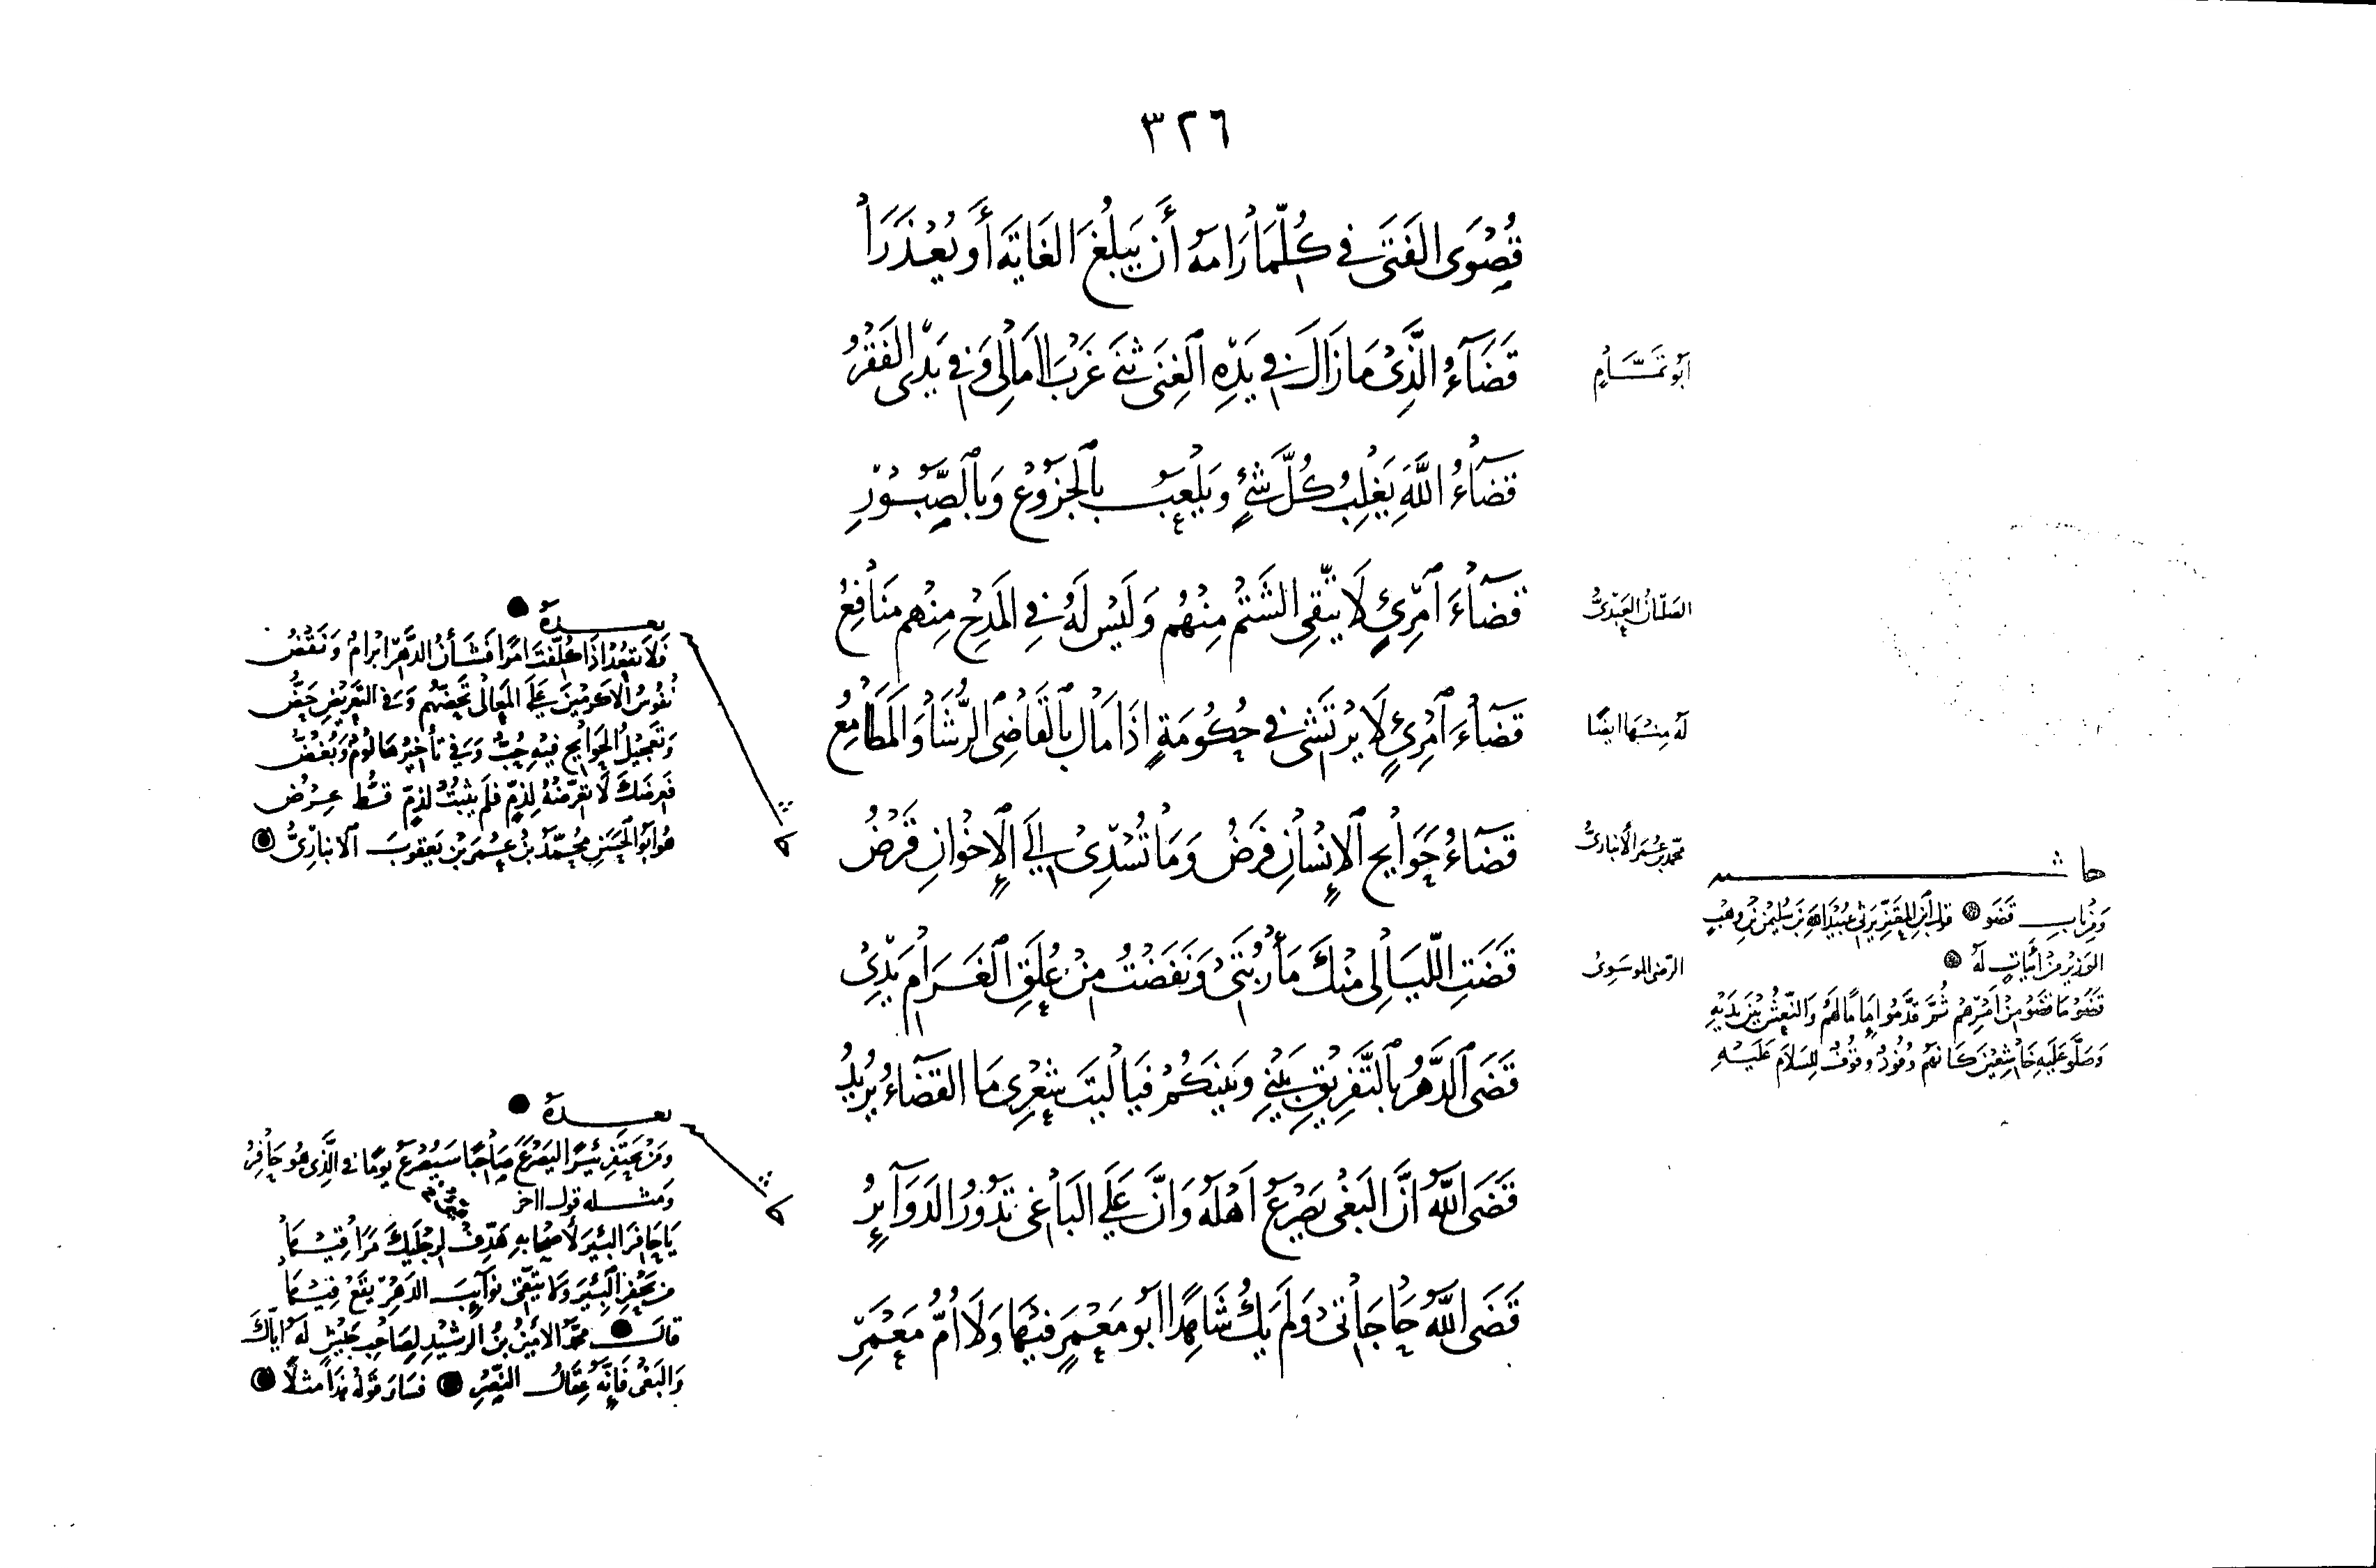 ٣٢٦
قُصْوَى الفَتَى فِي كُلِّمَا رَامَهُ أَنْ يَبْلُغَ الغَايَةَ أَوْ يُعْذَرَا
أبو تمّام
قَضَاءُ الَّذِي مَا زَالَ فِي يَدِهِ الغِنَى ثَنَى غَرْبَ امَالِي وَفِي يَدِي الفَقْرُ
قَضَاءُ اللَّهِ يَغْلِبُ كُلَّ شَيْءٍ وَيَلْعَبُ بِالجَزُوعِ وَبِالصَّبُورِ
الصلتان العبدي
قَضَاءَ امْرِئٍ لَا يَتَّقِي الشَّتْمَ مِنْهُم وَلَيْسَ لَهُ فِي المَدْحِ مِنْهُم مَنَافِعُ
له منها ايضا
قَضَاءَ امْرِئٍ لَا يَرْتَشِي فِي حُكُومَةٍ إِذَا مَالَ بِالقَاضِي الرُّشَا وَالمَطَامِعُ
محمد بن عمر الأنباري
قَضَاءُ حَوَايِجِ الإِنْسَانِ فَرْضُ وَمَا تُسْدِي إِلَى الإِخْوَانِ قَرْضُ
الرضي الموسوي
قَضَتِ اللَّيَالِي مِنْكَ مَأْرُبَتِي وَنَفَضْتُ مِنْ عُلَقِ الغَرَامِ يَدِي
قَضَى الدَّهْرُ بِالتَّفْرِيقِ بَيْنِي وَبَيْنَكُمْ فَيَا لَيْتَ شِعْرِي مَا القَضَاءُ يُرِيدُ
قَضَى اللَّهُ انَّ البَغْيَ يَصْرَعُ اهْلَهُ وَانَّ عَلَى البَاغِي تَدُورُ الدَوَآيِرُ
قَضَى اللَّهُ حَاجَاتِي وَلَمْ يَكُ شَاهِدًا ابُو مَعْمَرٍ فِيهَا وَلَا أُمُّ مَعْمَرِ
بعده
فَلَا تقعد اذَا كُلِّفتَ امرًا فَشَأنُ الدَّهْرِ ابْرامٌ وَنَقْضُ
نفوسُ الاكرمينَ عَلَى المَعَالِي تَحُضّهُم وَفِي التَّعْرِيضِ حَضُّ
وَتَعجيلُ الحَوَايج فيه حُبٌّ وَفي تأخيرهَا لومٌ وَبُغضُ
فَعِرضَكَ لَا تعرّضْهُ لِذمٍّ فلَم يثبتْ لذمٍّ قَطُّ عِرْضُ
هو ابُو الحَسَنِ محَمّد بن عُمَر بْن يَعقوبَ الانباري
بعده
ومَن يحتفر بئرًا ليَصْرَعَ صَاحِبًا سَيُصْرَعُ يومًا في الَّذِي هُو حَافِرُ
ومثله قول اخر
يَا حَافرَ البئر لأصحابه هَدِّفْ لرجْلَيكَ مَرَاقيهَا
من يَحْفِرِ البِئر وَلا يَتَّقِي نَوَآيبَ الدَهْرِ يقَعْ فيهَا
قالَ محَمّد الامينُ بنُ الرشيْدِ لِصَاحِبِ جَيْشٍ لَهُ ايّاكَ
وَالبَغْيَ فَإنَّهُ عِقَالُ النَّصْرِ فسَارَ قَولُهُ هَذَا مَثلًا
حاشيه
ومن باب قضو قول ابن المعتز يرثي عبيد الله بن سليمن بن وهب
الوزير من أبيات له
قَضَوْ مَا قَضَوْ مِنْ امْرِهم ثُمَّ قدَّمُوا امَامًا لَهُم وَالنَّعْشُ بَيْنَ يَدَيْهِ
وَصَلَّو عَلَيهِ خَاشِعِينَ كَانهم وُفُودٌ وقُوفٌ لِلسَّلَامِ عَلَيْهِ